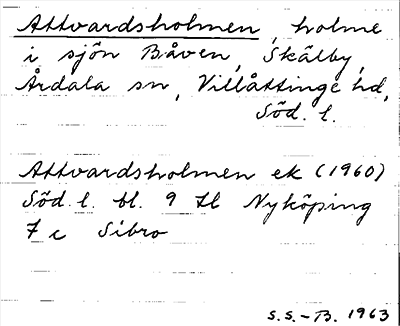 Attvardsholmen, holme
i sjön Båven, Skälby,
Årdala sn, Villåttinge hd,
Söd. l.
Attvardsholmen ek (1960)
Söd. l. bl. 9 tl Nyköping
7 c Sibro
S.S.-B. 1963